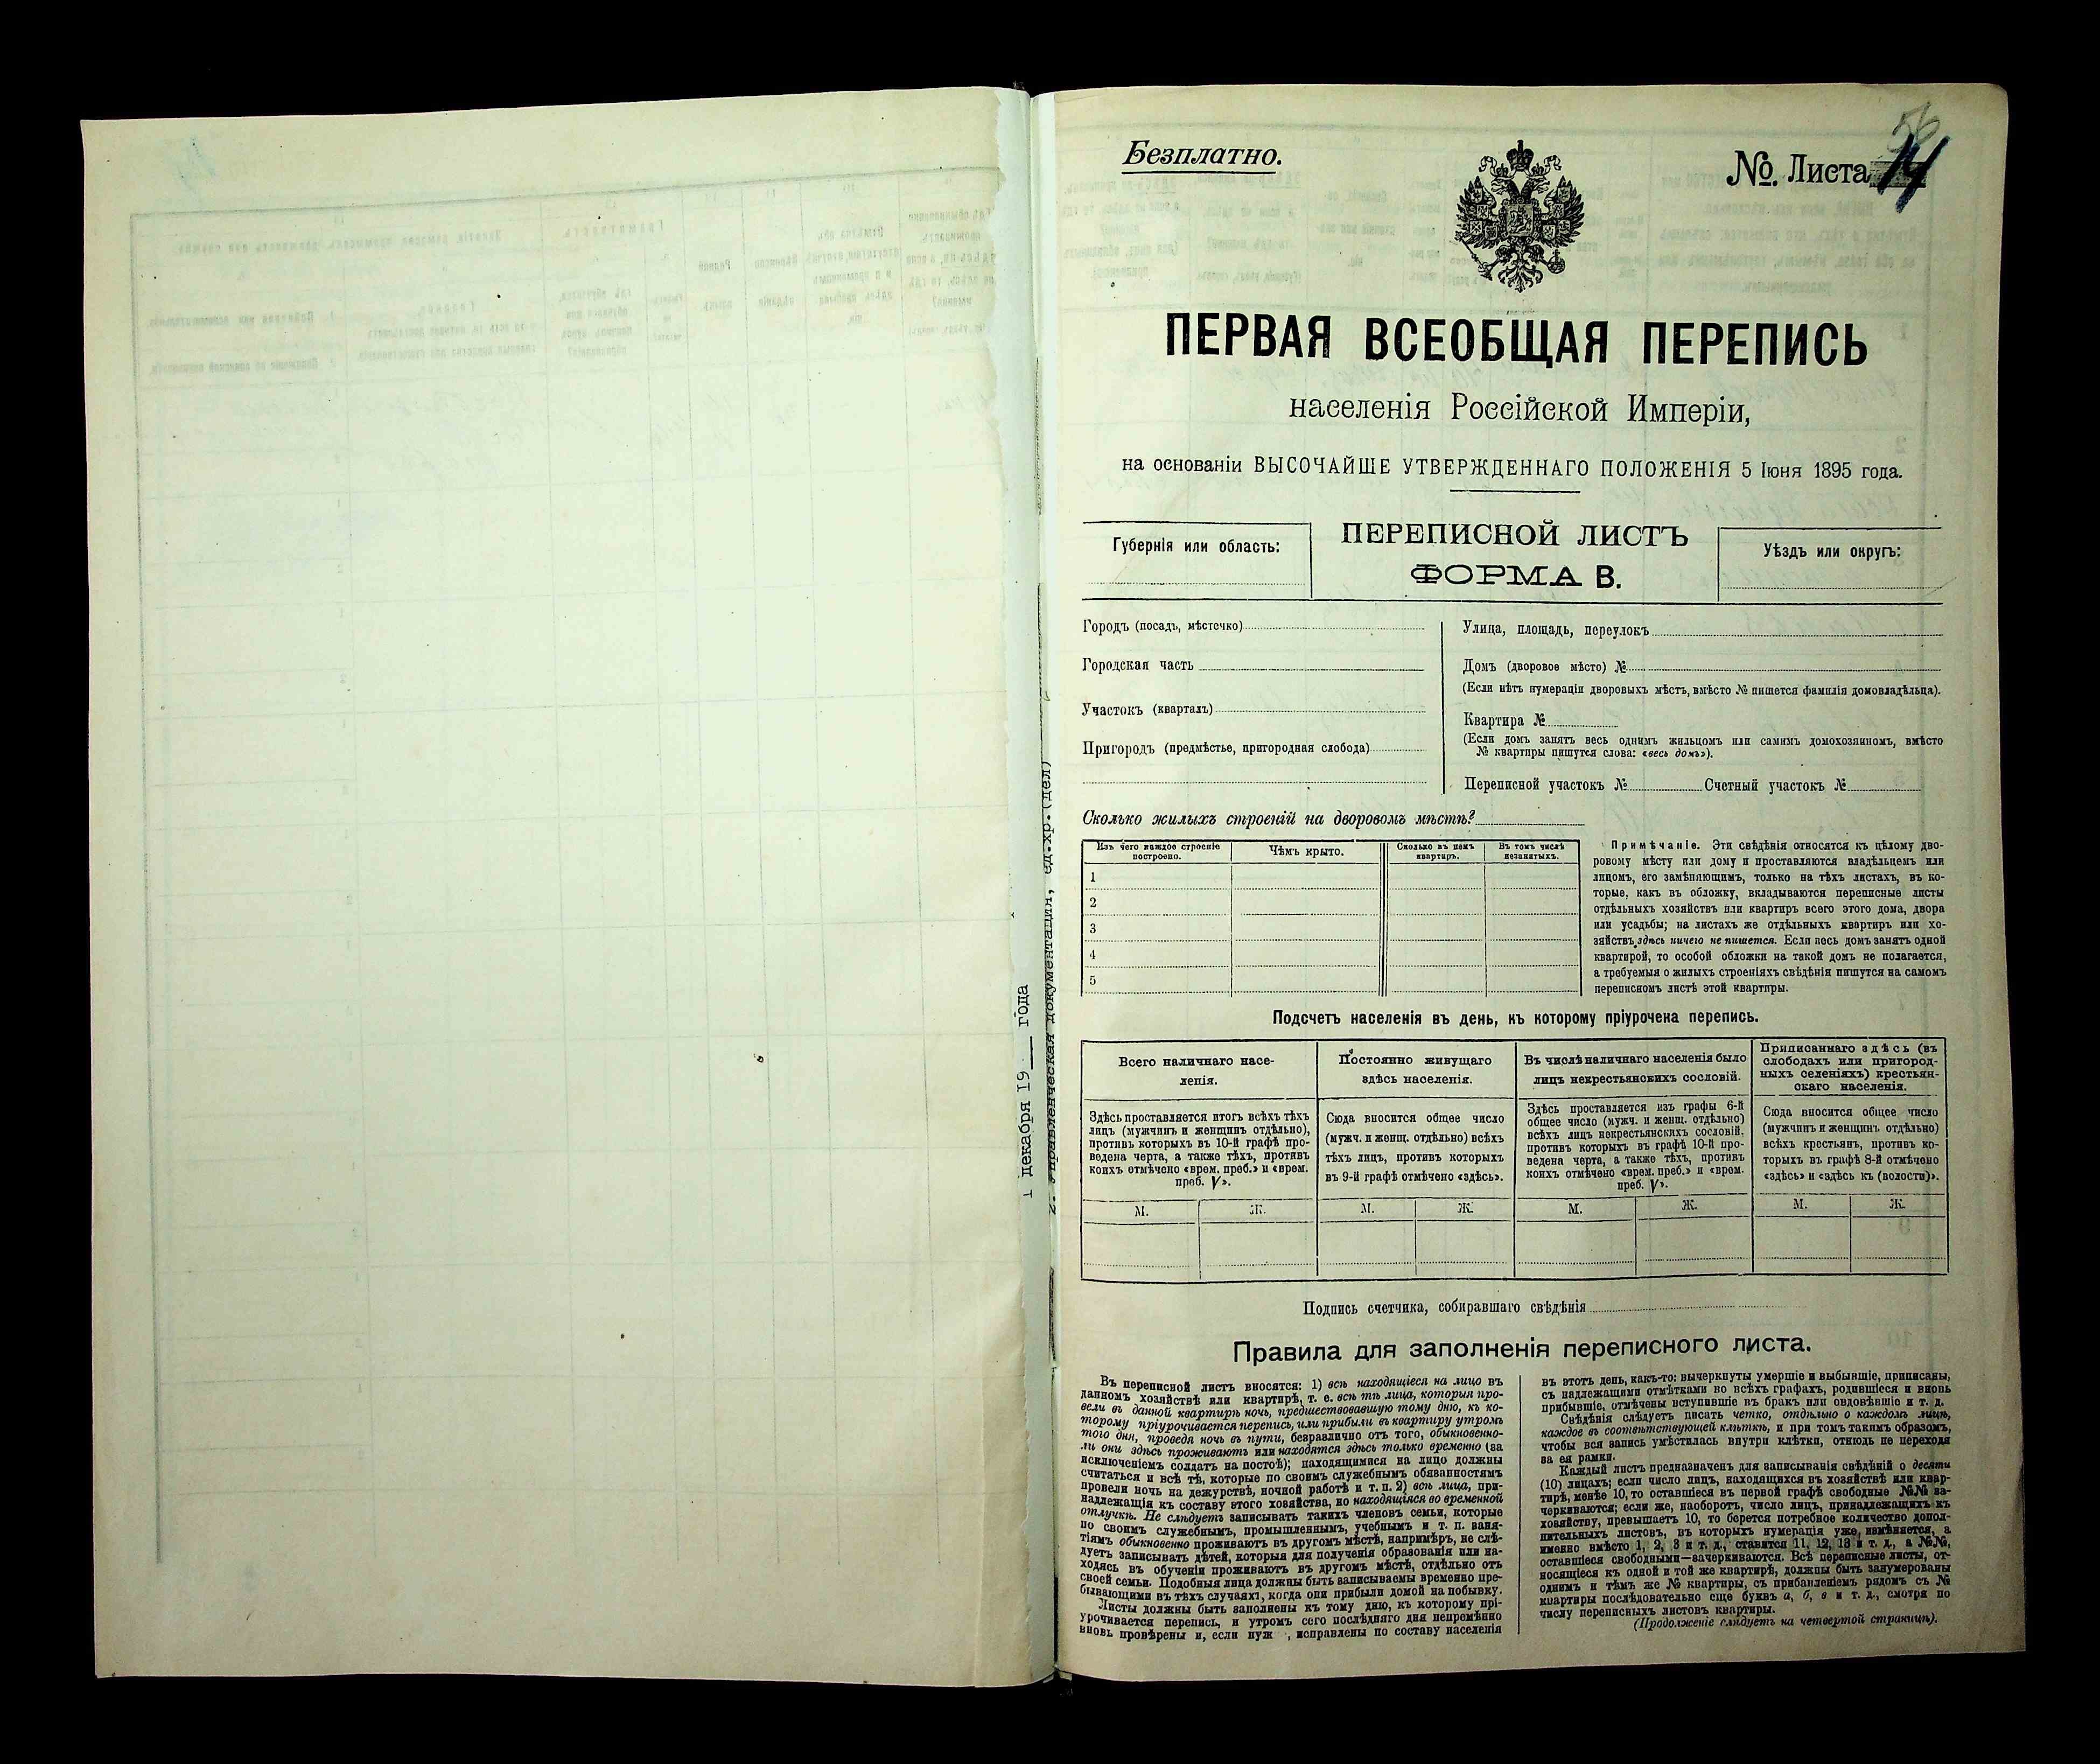 Безплатно.
№. Листа 14
56
ПЕРВАЯ ВСЕОБЩАЯ ПЕРЕПИСЬ
населенія Россійской Имперіи,
на основаніи ВЫСОЧАЙШЕ УТВЕРЖДЕННАГО ПОЛОЖЕНІЯ 5 Іюня 1895 года.
Губернія или область:
ПЕРЕПИСНОЙ ЛИСТЪ
ФОРМА В.
Уѣздъ или округъ:
Городъ (посадъ, мѣстечко)
Городская часть
Участокъ (кварталъ)
Пригородъ (предмѣстье, пригородная слобода)
Улица, площадь, переулокъ
Домъ (дворовое мѣсто) №
(Если нѣтъ нумераціи дворовыхъ мѣстъ, вмѣсто № пишется фамилія домовладѣльца).
Квартира №
(Если домъ занятъ весь однимъ жильцомъ или самимъ домохозяиномъ, вмѣсто
№ квартиры пишутся слова: «весь домъ»).
Переписной участокъ № Счетный участокъ №
Сколько жилыхъ строеній на дворовомъ мѣстѣ?
Изъ чего каждое строеніе
построено.
Чѣмъ крыто.
Сколько въ немъ
квартиръ.
Въ томъ числѣ
незанятыхъ.
1
2
3
4
5
Примѣчаніе. Эти свѣдѣнія относятся къ цѣлому дво-
ровому мѣсту или дому и проставляются владѣльцемъ или
лицомъ, его замѣняющимъ, только на тѣхъ листахъ, въ ко-
торые, какъ въ обложку, вкладываются переписные листы
отдѣльныхъ хозяйствъ или квартиръ всего этого дома, двора
или усадьбы; на листахъ же отдѣльныхъ квартиръ или хо-
зяйствъ здѣсь ничего не пишется. Если весь домъ занятъ одной
квартирой, то особой обложки на такой домъ не полагается,
а требуемыя о жилыхъ строеніяхъ свѣдѣнія пишутся на самомъ
переписномъ листѣ этой квартиры.
Подсчетъ населенія въ день, къ которому пріурочена перепись.
Всего наличнаго насе-
ленія.
Здѣсь проставляется итогъ всѣхъ тѣхъ
лицъ (мужчинъ и женщинъ отдѣльно),
противъ которыхъ въ 10-й графѣ про-
ведена черта, а также тѣхъ, противъ
коихъ отмѣчено «врем. преб.» и «врем.
преб. V».
М. Ж.
Постоянно живущаго
здѣсь населенія.
Сюда вносится общее число
(мужч. и женщ. отдѣльно) всѣхъ
тѣхъ лицъ, противъ которыхъ
въ 9-й графѣ отмѣчено «здѣсь».
М. Ж.
Въ числѣ наличнаго населенія было
лицъ некрестьянскихъ сословій.
Здѣсь проставляется изъ графы 6-й
общее число (мужч. и женщ. отдѣльно)
всѣхъ лицъ некрестьянскихъ сословій,
противъ которыхъ въ графѣ 10-й про-
ведена черта, а также тѣхъ, противъ
коихъ отмѣчено «врем. преб.» и «врем.
преб. V».
М. Ж.
Приписаннаго здѣсь (въ
слободахъ или пригород-
ныхъ селеніяхъ) крестьян-
скаго населенія.
Сюда вносится общее число
(мужчинъ и женщинъ отдѣльно)
всѣхъ крестьянъ, противъ ко-
торыхъ въ графѣ 8-й отмѣчено
«здѣсь» и «здѣсь къ (волости)».
М. Ж.
Подпись счетчика, собиравшаго свѣдѣнія
Правила для заполненія переписного листа.
Въ переписной листъ вносятся: 1) всѣ находящіеся на лицо въ
данномъ хозяйствѣ или квартирѣ, т. е. всѣ тѣ лица, которыя про-
вели въ данной квартирѣ ночь, предшествовавшую тому дню, къ ко-
торому пріурочивается перепись, или прибыли въ квартиру утромъ
того дня, проведя ночь въ пути, безразлично отъ того, обыкновенно-
ли они здѣсь проживаютъ или находятся здѣсь только временно (за
исключеніемъ солдатъ на постоѣ); находящимися на лицо должны
считаться и всѣ тѣ, которые по своимъ служебнымъ обязанностямъ
провели ночь на дежурствѣ, ночной работѣ и т. п. 2) всѣ лица, при-
надлежащія къ составу этого хозяйства, но находящіяся во временной
отлучкѣ. Не слѣдуетъ записывать такихъ членовъ семьи, которые
по своимъ служебнымъ, промышленнымъ, учебнымъ и т. п. заня-
тіямъ обыкновенно проживаютъ въ другомъ мѣстѣ, напримѣръ, не слѣ-
дуетъ записывать дѣтей, которыя для полученія образованія или на-
ходясь въ обученіи проживаютъ въ другомъ мѣстѣ, отдѣльно отъ
своей семьи. Подобныя лица должны быть записываемы временно пре-
бывающими въ тѣхъ случаяхъ, когда они прибыли домой на побывку.
Листы должны быть заполнены къ тому дню, къ которому прі-
урочивается перепись, и утромъ сего послѣдняго дня непремѣнно
вновь провѣрены и, если нуж , исправлены по составу населенія
въ этотъ день, какъ-то: вычеркнуты умершіе и выбывшіе, приписаны,
съ надлежащими отмѣтками во всѣхъ графахъ, родившіеся и вновь
прибывшіе, отмѣчены вступившіе въ бракъ или овдовѣвшіе и т. д.
Свѣдѣнія слѣдуетъ писать четко, отдѣльно о каждомъ лицѣ,
каждое въ соотвѣтствующей клѣткѣ, и при томъ такимъ образомъ,
чтобы вся запись умѣстилась внутри клѣтки, отнюдь не переходя
за ея рамки.
Каждый листъ предназначенъ для записыванія свѣдѣній о десяти
(10) лицахъ; если число лицъ, находящихся въ хозяйствѣ или квар-
тирѣ, менѣе 10, то оставшіеся въ первой графѣ свободные №№ за-
черкиваются; если же, наоборотъ, число лицъ, принадлежащихъ къ
хозяйству, превышаетъ 10, то берется потребное количество допол-
нительныхъ листовъ, въ которыхъ нумерація уже, измѣняется, а
именно вмѣсто 1, 2, 3 и т. д., ставится 11, 12, 13 и т. д., а №№,
оставшіеся свободными—зачеркиваются. Всѣ переписные листы, от-
носящіеся къ одной и той же квартирѣ, должны быть занумерованы
однимъ и тѣмъ же № квартиры, съ прибавленіемъ рядомъ съ №
квартиры послѣдовательно еще буквъ а, б, в и т. д., смотря по
числу переписныхъ листовъ квартиры.
(Продолженіе слѣдуетъ на четвертой страницѣ).
декабря 19___ года
управленческая документация, ед.хр.(дел)